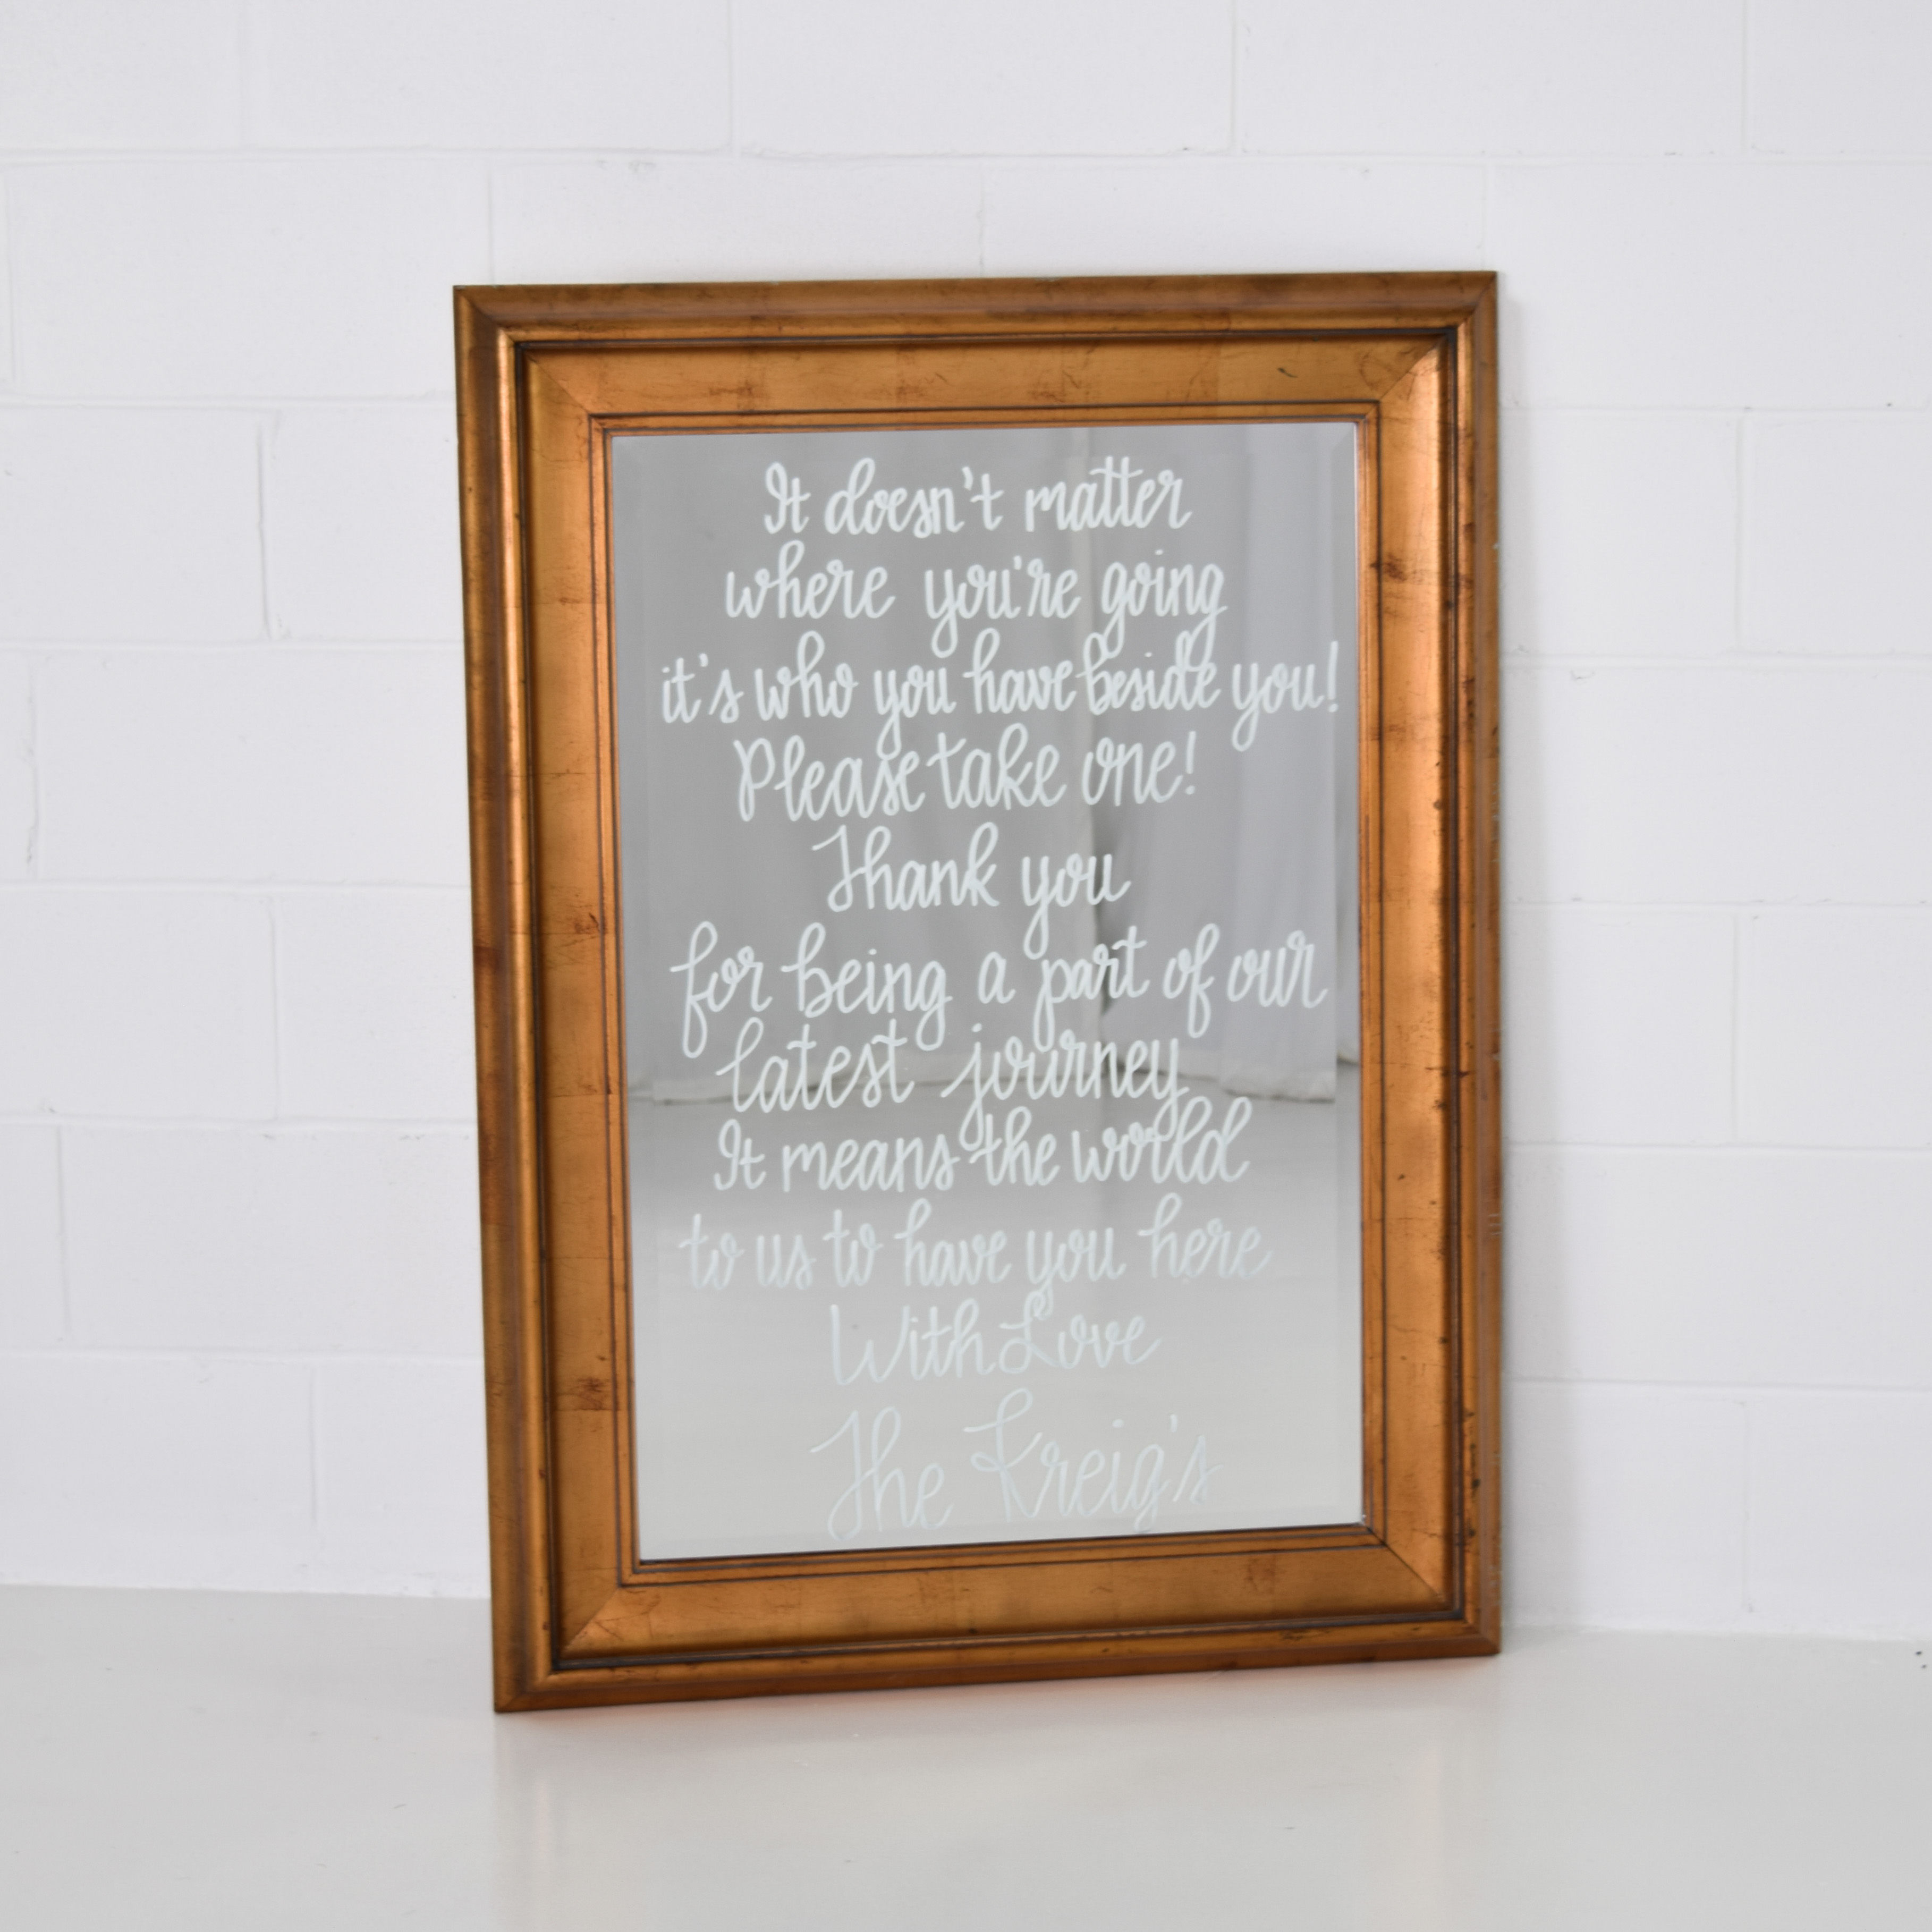 It doesn't matter
where you're going
it's who you have beside you!
Please take one!
Thank you
for being a part of our
latest journey
It means the world
to us to have you here
With Love
The Kreig's